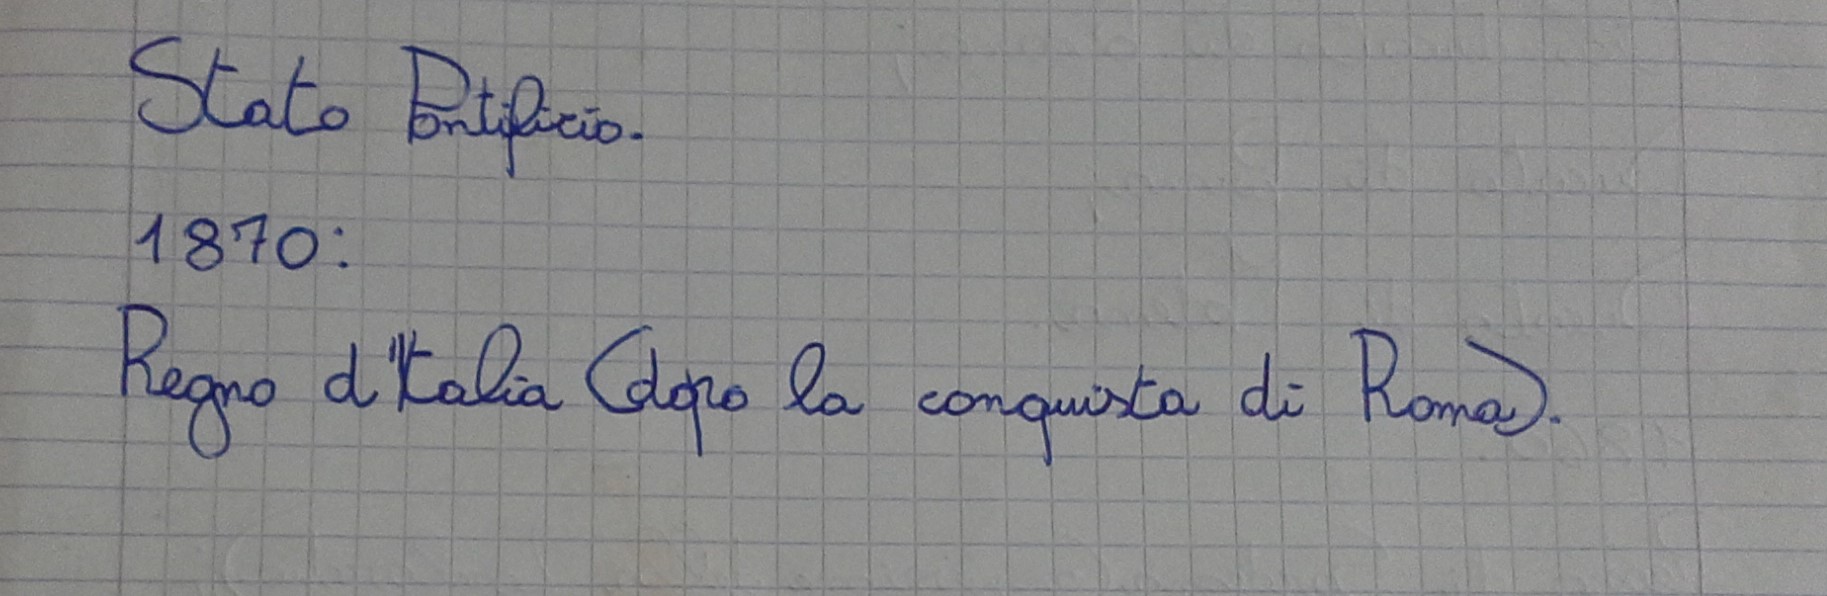 Stato Pontificio.
1870:
Regno d'Italia (dopo la conquista di Roma).